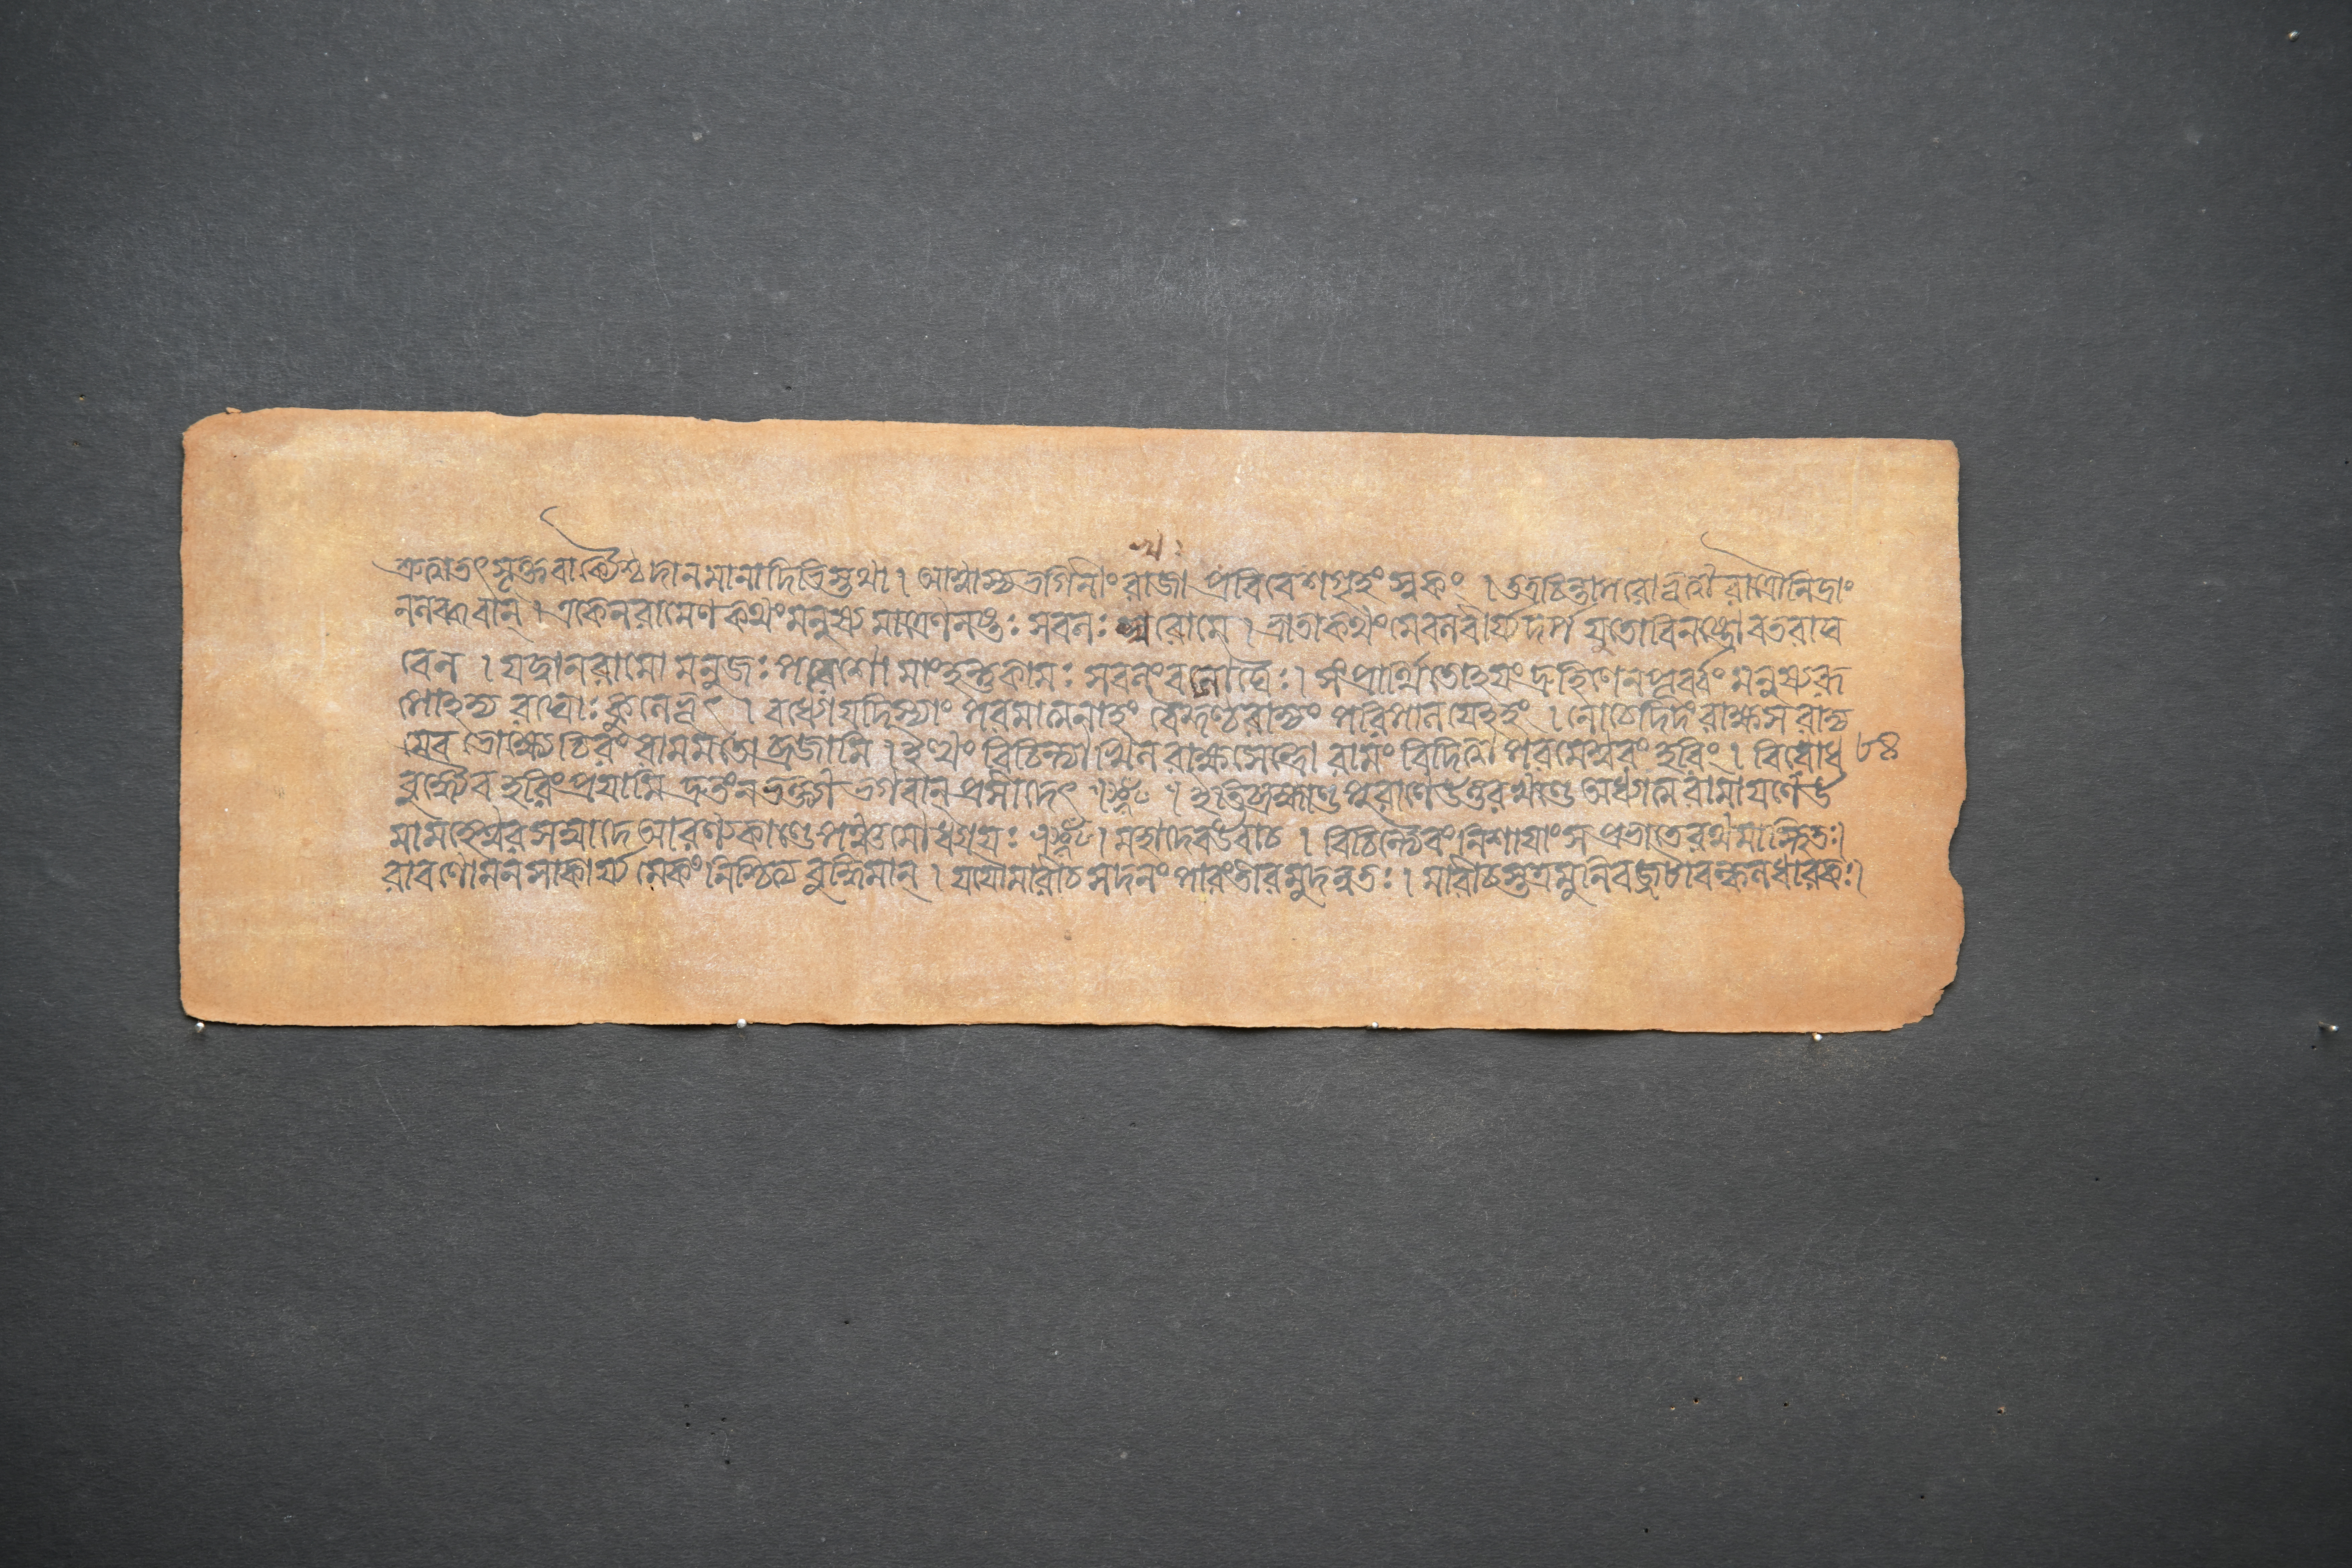 শ্রুত্বাতৎসূক্তবাক্যৈশ্চ দানমানাদিভিস্তথা । আশ্বাস্য ভগিনীং রাজা প্রবিবেশগৃহং স্বকং । তত্রচিন্তাপরোভূত্বা রাত্রৌনিদ্রাং
ননব্ধবান্ । একেনরামেণ কথংমনুষ্যমাত্রেণনষ্টঃ সবনঃ খরোমে । ভ্রাতাকথংমেবনবীর্য্যদর্প্পযুতোবিনষ্টোবতরাঘ
বেন । যদ্বানরামো মনুজঃ পরেশো মাংহন্তুকামঃ সবনংবনৌঘৈঃ । সংপ্রার্থিতোহয়ং দ্রুহিণেনপূর্ব্বং মনুষ্যরূ
পোহদ্য রঘোঃ কুনেভূৎ । বধ্যোযদিস্যাং পরমাত্মনাহং বৈকুণ্ঠরাজ্যং পরিপানযেহহং । নোচেদিদং রাক্ষসরাজ্য
মেব ভোক্ষ্যে চিরং রামমতো ব্রজামি । ইত্থং বিচিন্ত্যাখিনরাক্ষসেন্দ্রো রামং বিদিত্বা পরমেশ্বরং হরিং । বিরোধ ৮৪
বুদ্ধ্যৈব হরিংপ্রযামি দ্রুতংনভক্ত্যা ভগবানপ্রসীদেৎ । ইতিব্রহ্মাণ্ড পুরাণেউত্তরখণ্ডে অধ্যাত্মরামাযণেউ
মামহেশ্বরসম্বাদে আরণ্যকাণ্ডে পঞ্চমোধ্যাযঃ । মহাদেবউবাচ । বিচিন্ত্যৈবংনিশাযাংস প্রভাতেরথমাস্থিতঃ।
রাবণোমনসাকার্য্যমেকংনিশ্চিত্য বুদ্ধিমান্ । যযৌমারীচসদনং পারংতীরমুদন্বতঃ । মারীচস্তত্রমুনিবজ্জটাবল্কনধারকঃ।